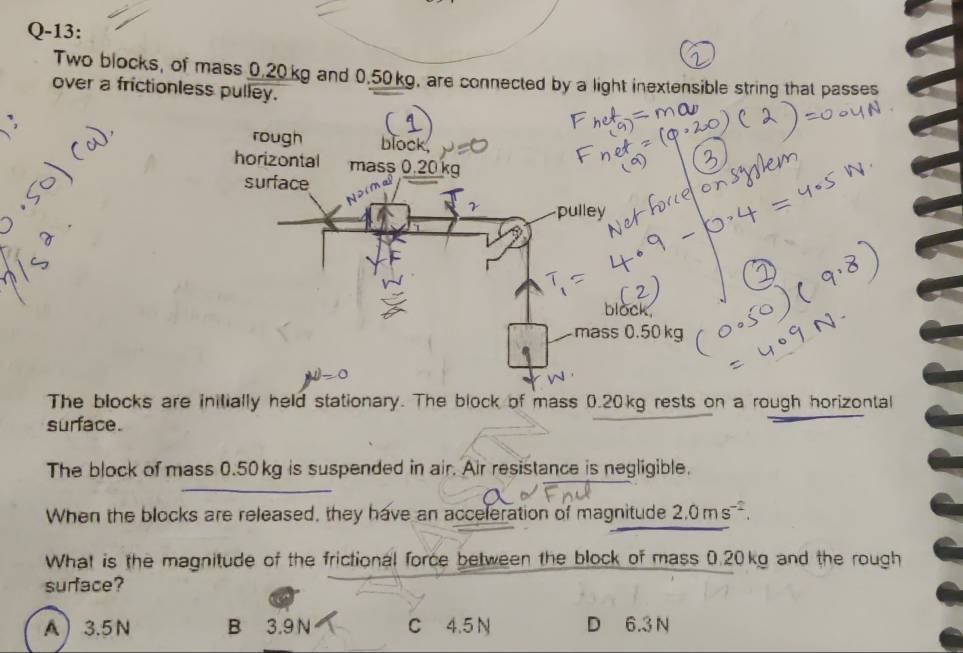 Q-13:
Two blocks, of mass 0.20 kg and 0.50 kg, are connected by a light inextensible string that passes
over a frictionless pulley.
(2)
F net(a) = ma
F net(a) = (0.20) (2) = 0.04N
(3)
Net force on system
4.9 - 0.4 = 4.5 N.
0.50) (a).
m/s²
rough
horizontal
surface
(1)
block, μ=0
mass 0.20 kg
Normal
T2
W
pulley
T1 =
(2)
block,
mass 0.50 kg
(1)
(0.50) (9.8)
= 4.9 N.
W.
μ=0
The blocks are initially held stationary. The block of mass 0.20 kg rests on a rough horizontal
surface.
The block of mass 0.50 kg is suspended in air. Air resistance is negligible.
a α Fnet
When the blocks are released, they have an acceleration of magnitude 2.0 m s⁻².
What is the magnitude of the frictional force between the block of mass 0.20 kg and the rough
surface?
A 3.5 N B 3.9 N C 4.5 N D 6.3 N